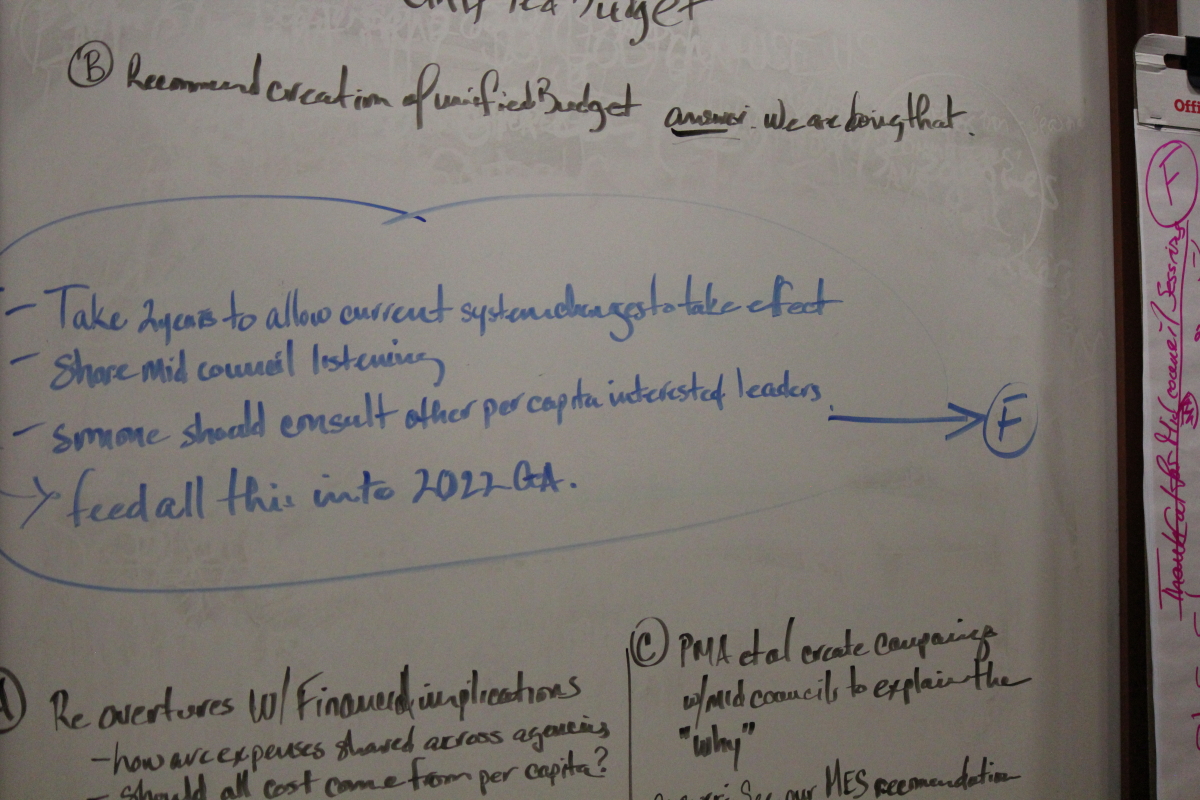 Budget
(B) Recommend creation of unified Budget answer: we are doing that.
- Take 2 years to allow current system changes to take effect
- Share mid council listening
- Someone should consult other per capita interested leaders. → (F)
→ feed all this into 2022 GA.
(A) Re overtures w/ Financial implications
- how are expenses shared across agencies
- should all cost come from per capita?
(C) PMA et al create campaings
w/ mid councils to explain the
"why"
See our MES recomendation
Offi
Thankful for Mid council Session